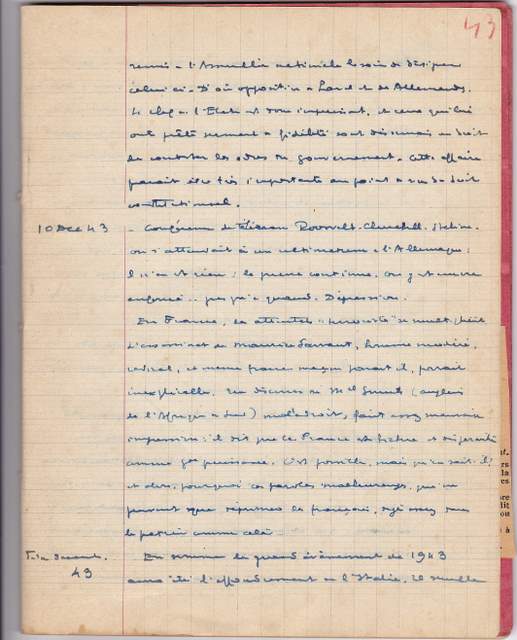 43
remis à l'Assemblée nationale le soin de désigner
celui-ci. D'où opposition à Laval et des Allemands.
Le chef de l'Etat est donc impuissant, et ceux qui lui
ont prêté serment de fidélité sont désormais en droit
de contester les ordres du gouvernement. Cette affaire
paraît être très importante au point de vue du droit
constitutionnel.
10 Dec 43 - Conférence de Téhéran Roosvelt-Churchill, Staline.
on s'attendait à un ultimatum à l'Allemagne ;
Il n'en est rien ; la guerre continue. On y est encore
engagé... jusqu'à quand. Dépression.
En France, les attentats "terroristes" se multiplient
L'assassinat de Maurice Sarraut, homme modéré,
radical, et même franc maçon paraît il, paraît
inexplicable. Un discours du Mal Smuts (anglais
de l'Afrique du Sud) maladroit, fait assez mauvaise
impression : il dit que la France est finie et disparaît
comme gde puissance. C'est possible, mais qu'en sait-il ?
et alors, pourquoi ces paroles malheureuses, que ne
peuvent que réprimer les français, déjà assez
comme celà.
Fin Décembre. En somme le grand évènement de 1943
43
aura été l'effondrement de l'Italie. Il semble